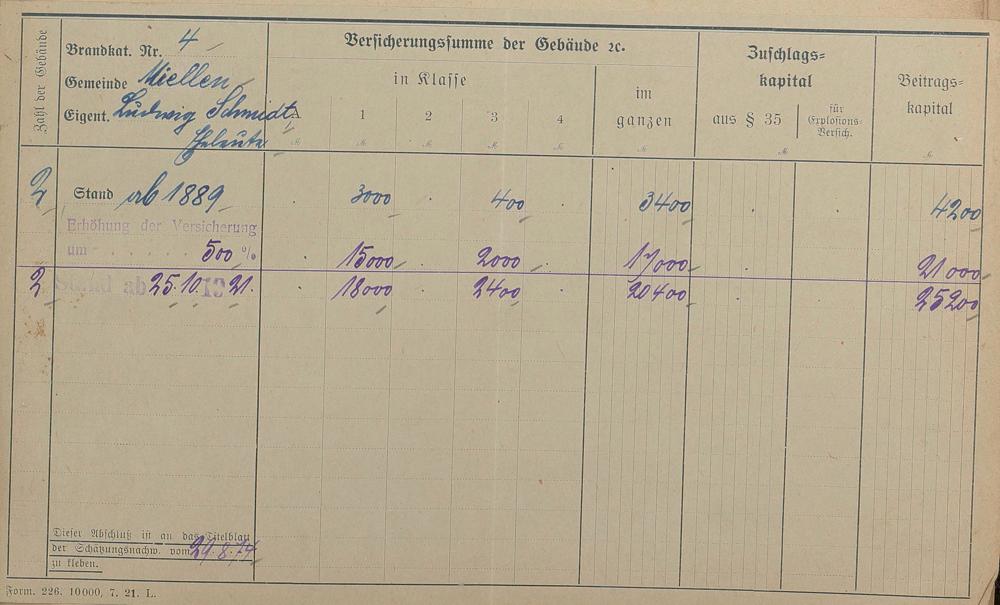 Zahl der Gebäude
Brandkat. Nr. 4
Gemeinde Miellen
Eigent. Ludwig Schmidt
Eheleute
Versicherungssumme der Gebäude ꝛc.
in Klasse
A 1 2 3 4
im
ganzen
Zuschlags-
kapital
aus § 35
für
Explosions-
Versich.
Beitrags-
kapital
ℳ ℳ ℳ ℳ ℳ ℳ ℳ ℳ
2 Stand ab 1889 . 3000 . 400 . 3400 . . 4200
Erhöhung der Versicherung
um . . . . . 500 % . 15000 . 2000 . 17000 . . 21000
2 Stand ab 25.10.1921. . 18000 . 2400 . 20400 . . 25200
Dieser Abschluß ist an das Titelblatt
der Schätzungsnachw. vom 29.8.74
zu kleben.
Form. 226. 10000, 7. 21. L.